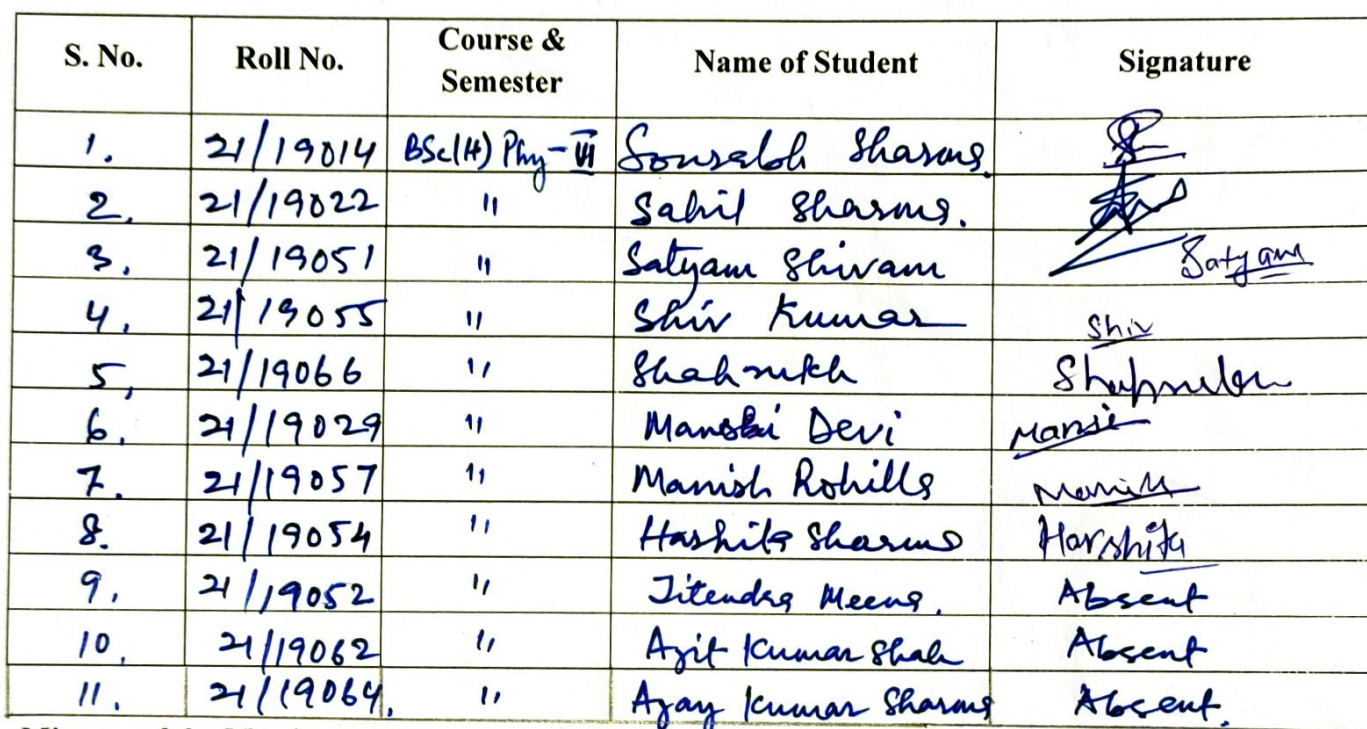 S. No. Roll No. Course & Semester Name of Student Signature
1. 21/19014 BSc(H) Phy-VI Sourabh Sharma
2. 21/19022 " Sahil Sharma.
3. 21/19051 " Satyam Shivam Satyam
4. 21/19055 " Shiv Kumar Shiv
5. 21/19066 " Shahrukh Shahrukh
6. 21/19029 " Manshi Devi Mansi
7. 21/19057 " Manish Rohilla Manish
8. 21/19054 " Harshita Sharma Harshita
9. 21/19052 " Jitendra Meena. Absent
10. 21/19062 " Ajit Kumar Shah Absent
11. 21/19064. " Ajay Kumar Sharma Absent.